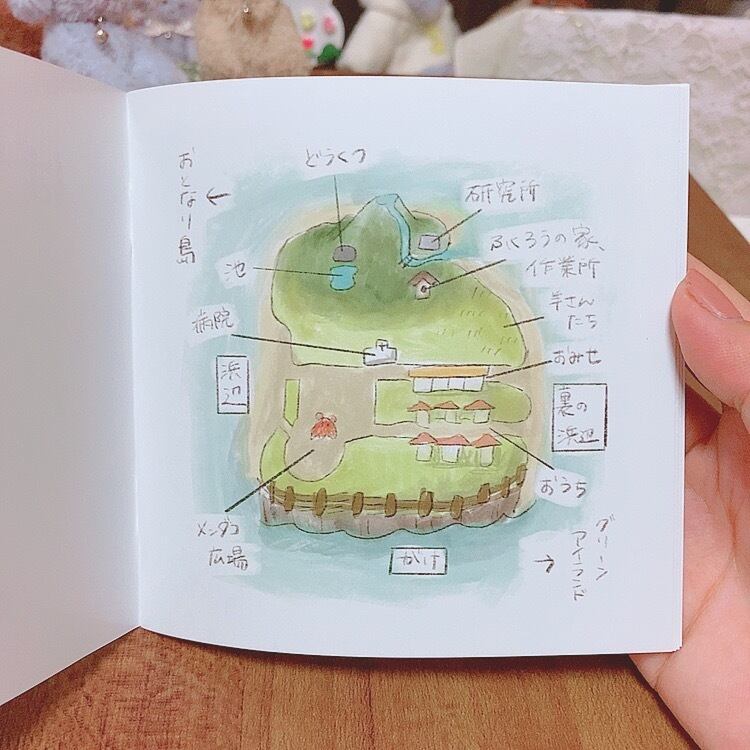 おとなり島
←
どうくつ
研究所
ふくろうの家、
作業所
池
羊さん
たち
病院
おみせ
浜辺
裏の
浜辺
おうち
メンダコ
広場
がけ
→
グリーン
アイランド